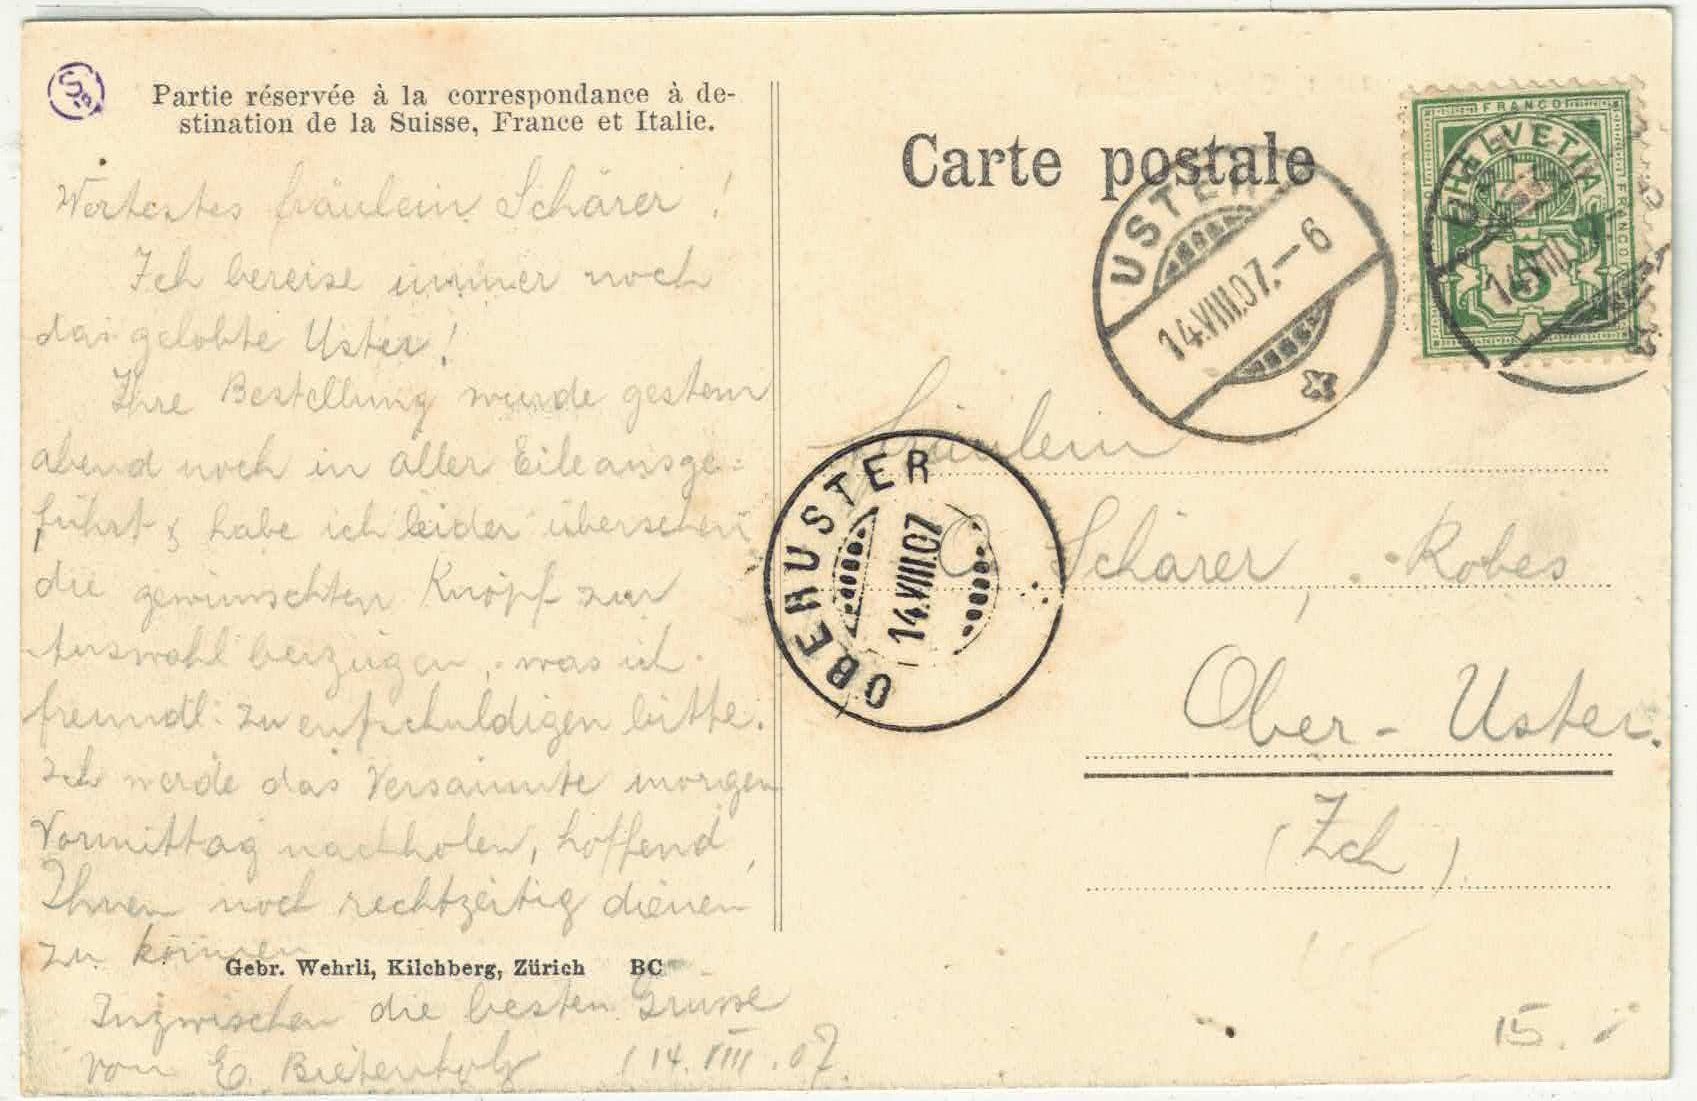 Partie réservée à la correspondance à de-
stination de la Suisse, France et Italie.
Wertestes Fräulein Schärer !
Ich bereise immer noch
das gelobte Uster!
Ihre Bestellung wurde gestern
abend noch in aller Eile ausge=
führt & habe ich leider übersehen
die gewünschten Knöpf zur
Auswahl beizugen, was ich
freundl: zu entschuldigen bitte.
Ich werde das Versäumte morgen
Vormittag nachholen, hoffend,
Ihnen noch rechtzeitig dienen
zu können
Gebr. Wehrli, Kilchberg, Zürich BC
Inzwischen die besten Grüsse
von E. Bietenholz 14.VIII.07.
Carte postale
USTER
14.VIII.07.–6
FRANCO
HELVETIA
FRANCO
5
14.VIII
Fräulein
Schärer, Robes
Ober-Uster.
(Zch)
OBERUSTER
14.VIII.07
15.